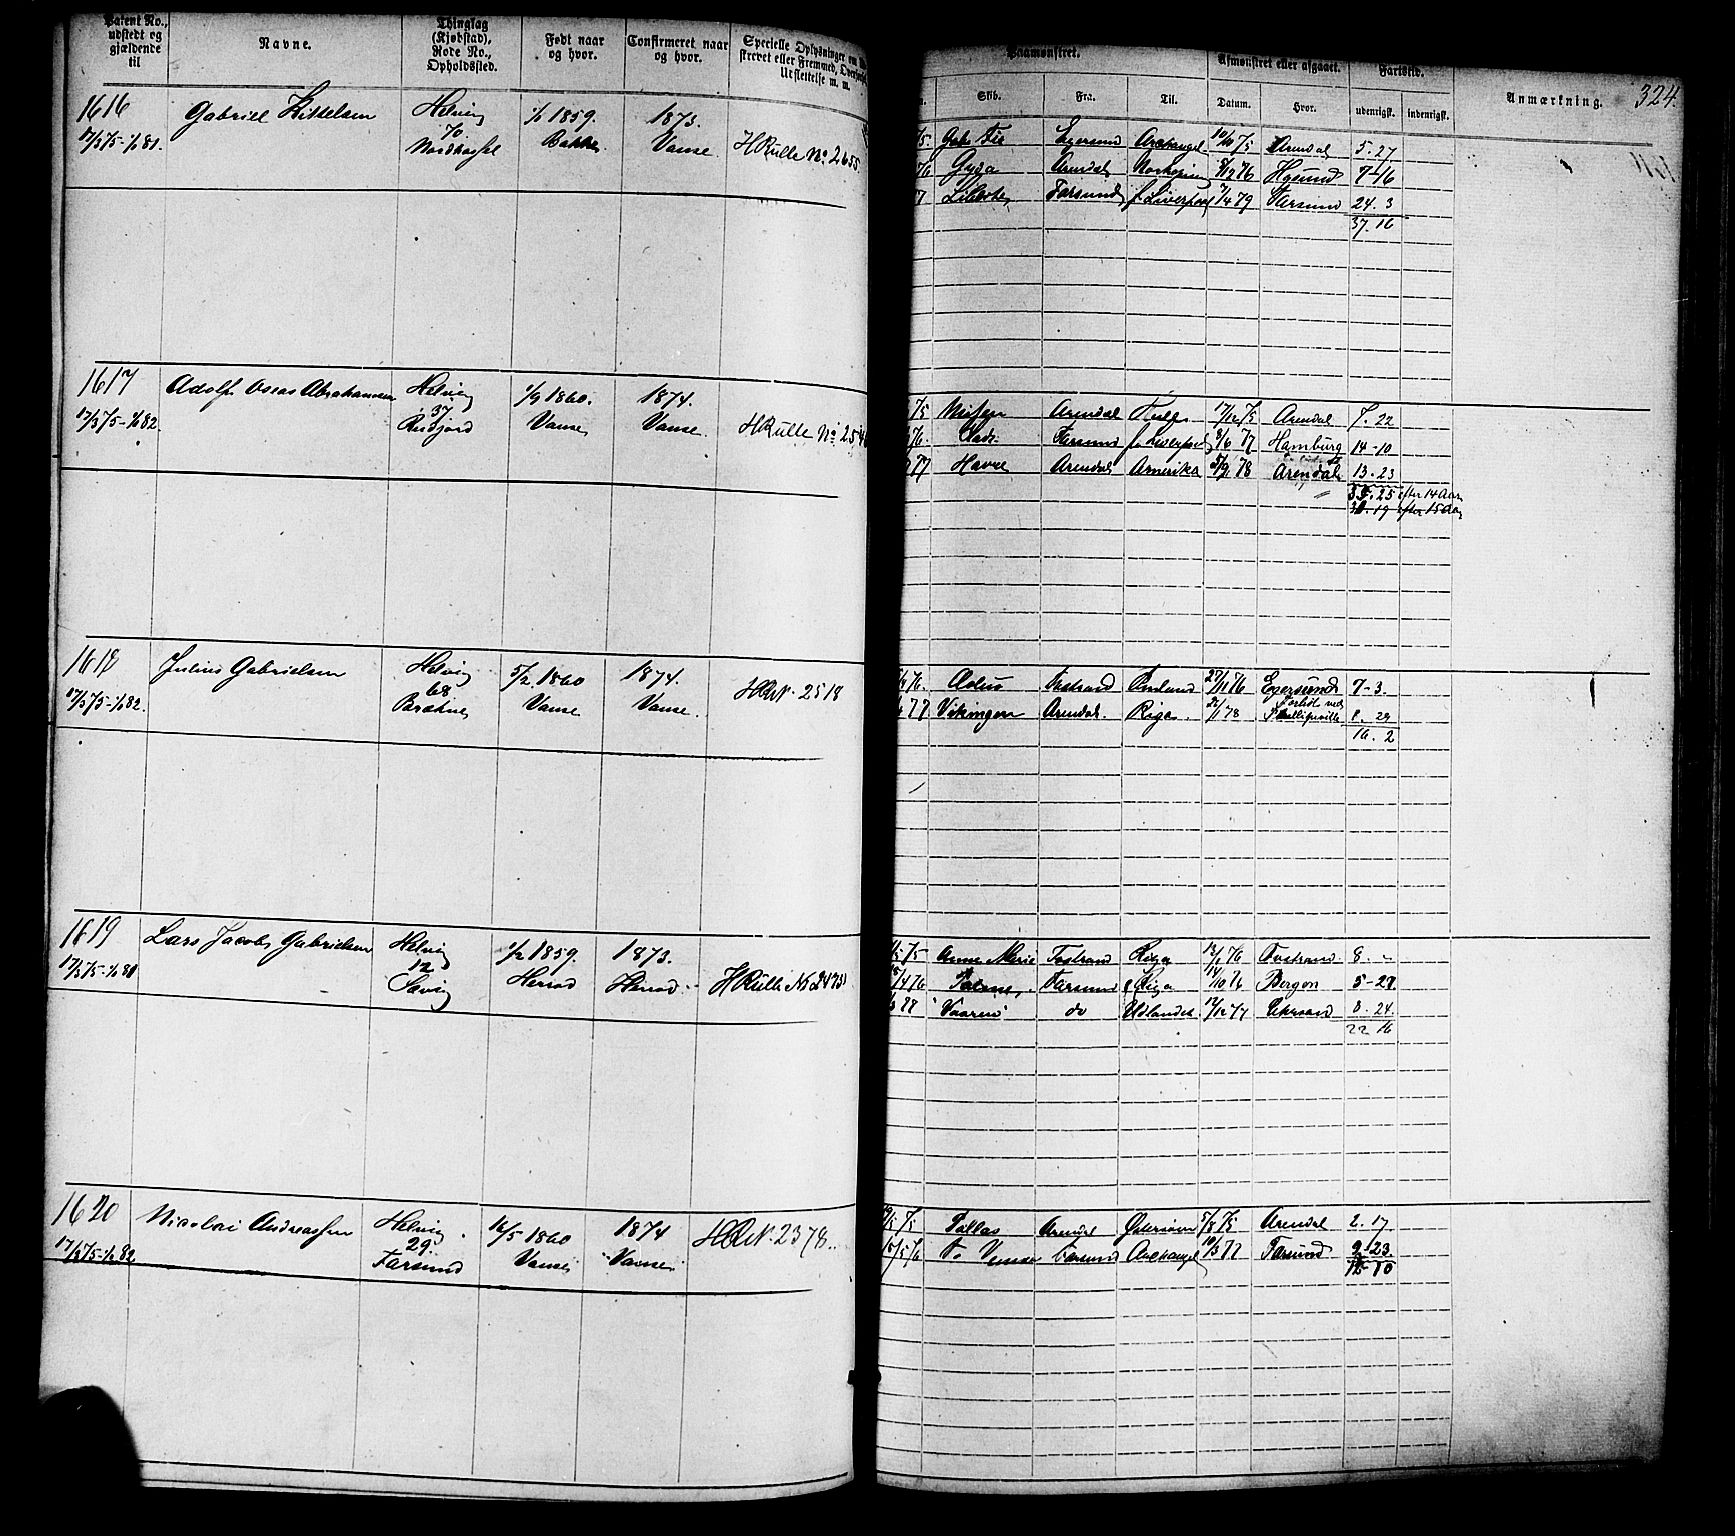 Patent No.,
udstedt og
gjældende
til
Navne.
Thinglag
(Kjøbstad),
Rode No.,
Opholdssted.
Født naar
og hvor.
Confirmeret naar
og hvor.
Specielle Oplysninger om
skrevet eller Fremmed,
Udslettelse m. m.
Paamønstret.
Afmønstret eller afgaaet.
Fartstid.
324.
Skib.
Fra.
Til.
Datum.
Hvor.
udenrigst.
indenrigst.
Anmærkning.
1616
17/3 75-1/1 81.
Gabriel Kittelsen
Helvig
70
Nordhassel
1/1 1859.
Bakke
1873.
Vanse
HRulle No. 2655
Egersund Archangel 10/10 75 Arendal 5-27
Gyda Arendal Norkøping 76 7-16
Farsund f. Liverpool 1/4 79 Farsund 24. 3
37. 16
1617
17/3 75-1/1 82.
Adolf Oseas Abrahamsen
Helvig
37
Rudjord
1/9 1860.
Vanse
1874.
Vanse.
HRulle No. 254
Arendal 17/12 75 Arendal 7. 22
Farsund 77 Hamburg 14-10
77 Havre Arendal Amerika 5/9 78 Arendal 13. 23
35. 25 efter 14 Aar
30. 19 efter 15 Aar
1618
17/3 75-1/1 82.
Julius Gabrielsen
Helvig
68
Brækne
5/2 1860
Vanse
1874.
Vanse.
HRN. 2518
76. Tvestrand 27/11 76 Egersund 7-3.
77 Vikingen Arendal. Riga. 22/1 78 Forlist ved
Phillipsville 8. 29
16. 2
1619
17/3 75-1/1 81
Lars Jacob Gabrielsen
Helvig
12
Sævig
1/2 1859.
Herrad
1873.
Herrad.
HRulle No 2473
75 Anne Marie Tvestrand Riga 13/1 76 Tvestrand 8. "
15/4 76 Farsund Riga 14/10 76 Bergen 5-27
"Vaaren" do Udlandet 12/12 77 8. 24
22 16
1620
17/3 75-1/1 82
Nicolai Andreassen
Helvig
29
Farsund
16/5 1860
Vanse
1874
Vanse
HRN. 2378.
19/5 75 Pallas Arendal Østersøen 5/8 75 Arendal 2. 17
15/5 76 Farsund Archangel 10/3 77 Farsund 9. 23
12 10